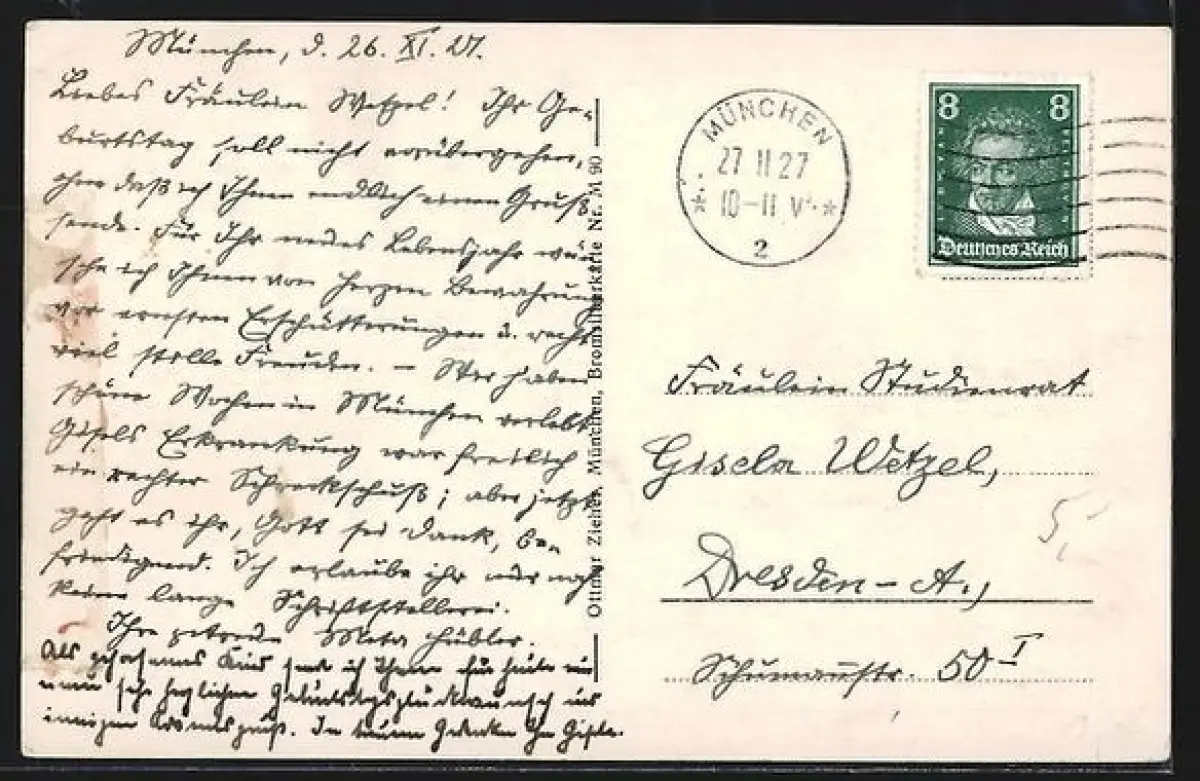 München, d. 26. XI. 27.
Liebes Fräulein Wetzel! Ihr Ge-
burtstag soll nicht vorübergehen,
ohne daß ich Ihnen endlich einen Gruß
sende. Für Ihr neues Lebensjahr wün
sche ich Ihnen von Herzen Bewahrung
vor ernsten Erschütterungen u. recht
viel stille Freuden. – Wir haben
schöne Wochen in München verlebt
Gisels Erkrankung war freilich
ein rechter Schreckschuß; aber jetzt
geht es ihr, Gott sei Dank, be-
friedigend. Ich erlaube ihr nur noch
keine lange Schriftstellerei.
Ihre Meta Hübler.
Als gehorsames Kind sende ich Ihnen für heute
sehr herzlichen Geburtstagsglückwunsch
innigen In treuem Gedenken Ihre Gisela.
Ottmar Zieher, München, Bromsilberkarte Nr. M 90
MÜNCHEN
27 11 27
10-11 V
2
8 8
Deutsches Reich
Fräulein Studienrat
Gisela Wetzel,
Dresden-A.,
Schumannstr. 50 I
5,-